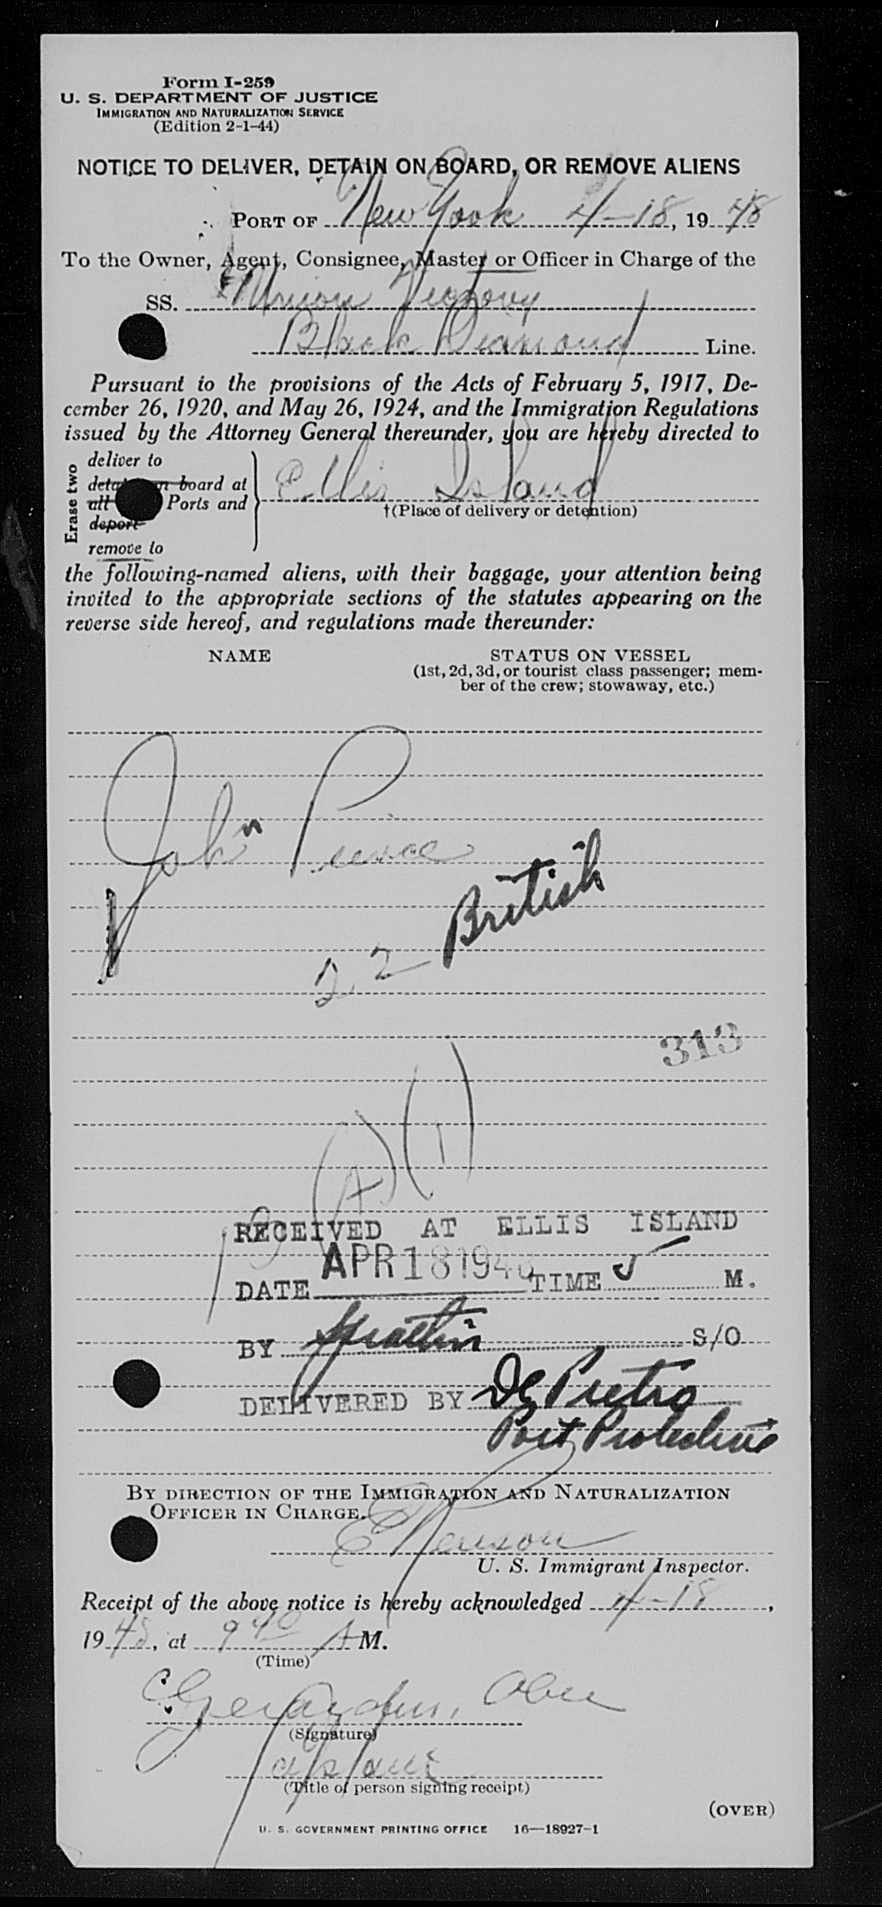 Form I-259
U. S. DEPARTMENT OF JUSTICE
IMMIGRATION AND NATURALIZATION SERVICE
(Edition 2-1-44)
NOTICE TO DELIVER, DETAIN ON BOARD, OR REMOVE ALIENS
PORT OF New York 4-18, 1948
To the Owner, Agent, Consignee, Master or Officer in Charge of the
SS. Union Victory
Black Diamond Line.
Pursuant to the provisions of the Acts of February 5, 1917, De-
cember 26, 1920, and May 26, 1924, and the Immigration Regulations
issued by the Attorney General thereunder, you are hereby directed to
Erase two
deliver to
detain on board at
all Ports and
deport
remove to
Ellis Island
†(Place of delivery or detention)
the following-named aliens, with their baggage, your attention being
invited to the appropriate sections of the statutes appearing on the
reverse side hereof, and regulations made thereunder:
NAME STATUS ON VESSEL
(1st, 2d, 3d, or tourist class passenger; mem-
ber of the crew; stowaway, etc.)
John Peirce
22 British
313
(A) (1)
RECEIVED AT ELLIS ISLAND
DATE APR 18 1948 TIME M.
BY S/O
DELIVERED BY De Pietro
Port Protective
BY DIRECTION OF THE IMMIGRATION AND NATURALIZATION
OFFICER IN CHARGE.
U. S. Immigrant Inspector.
Receipt of the above notice is hereby acknowledged 4-18,
1948, at 9 40 A M.
(Time)
(Signature)
Captain
(Title of person signing receipt)
(OVER)
U. S. GOVERNMENT PRINTING OFFICE 16—18927-1